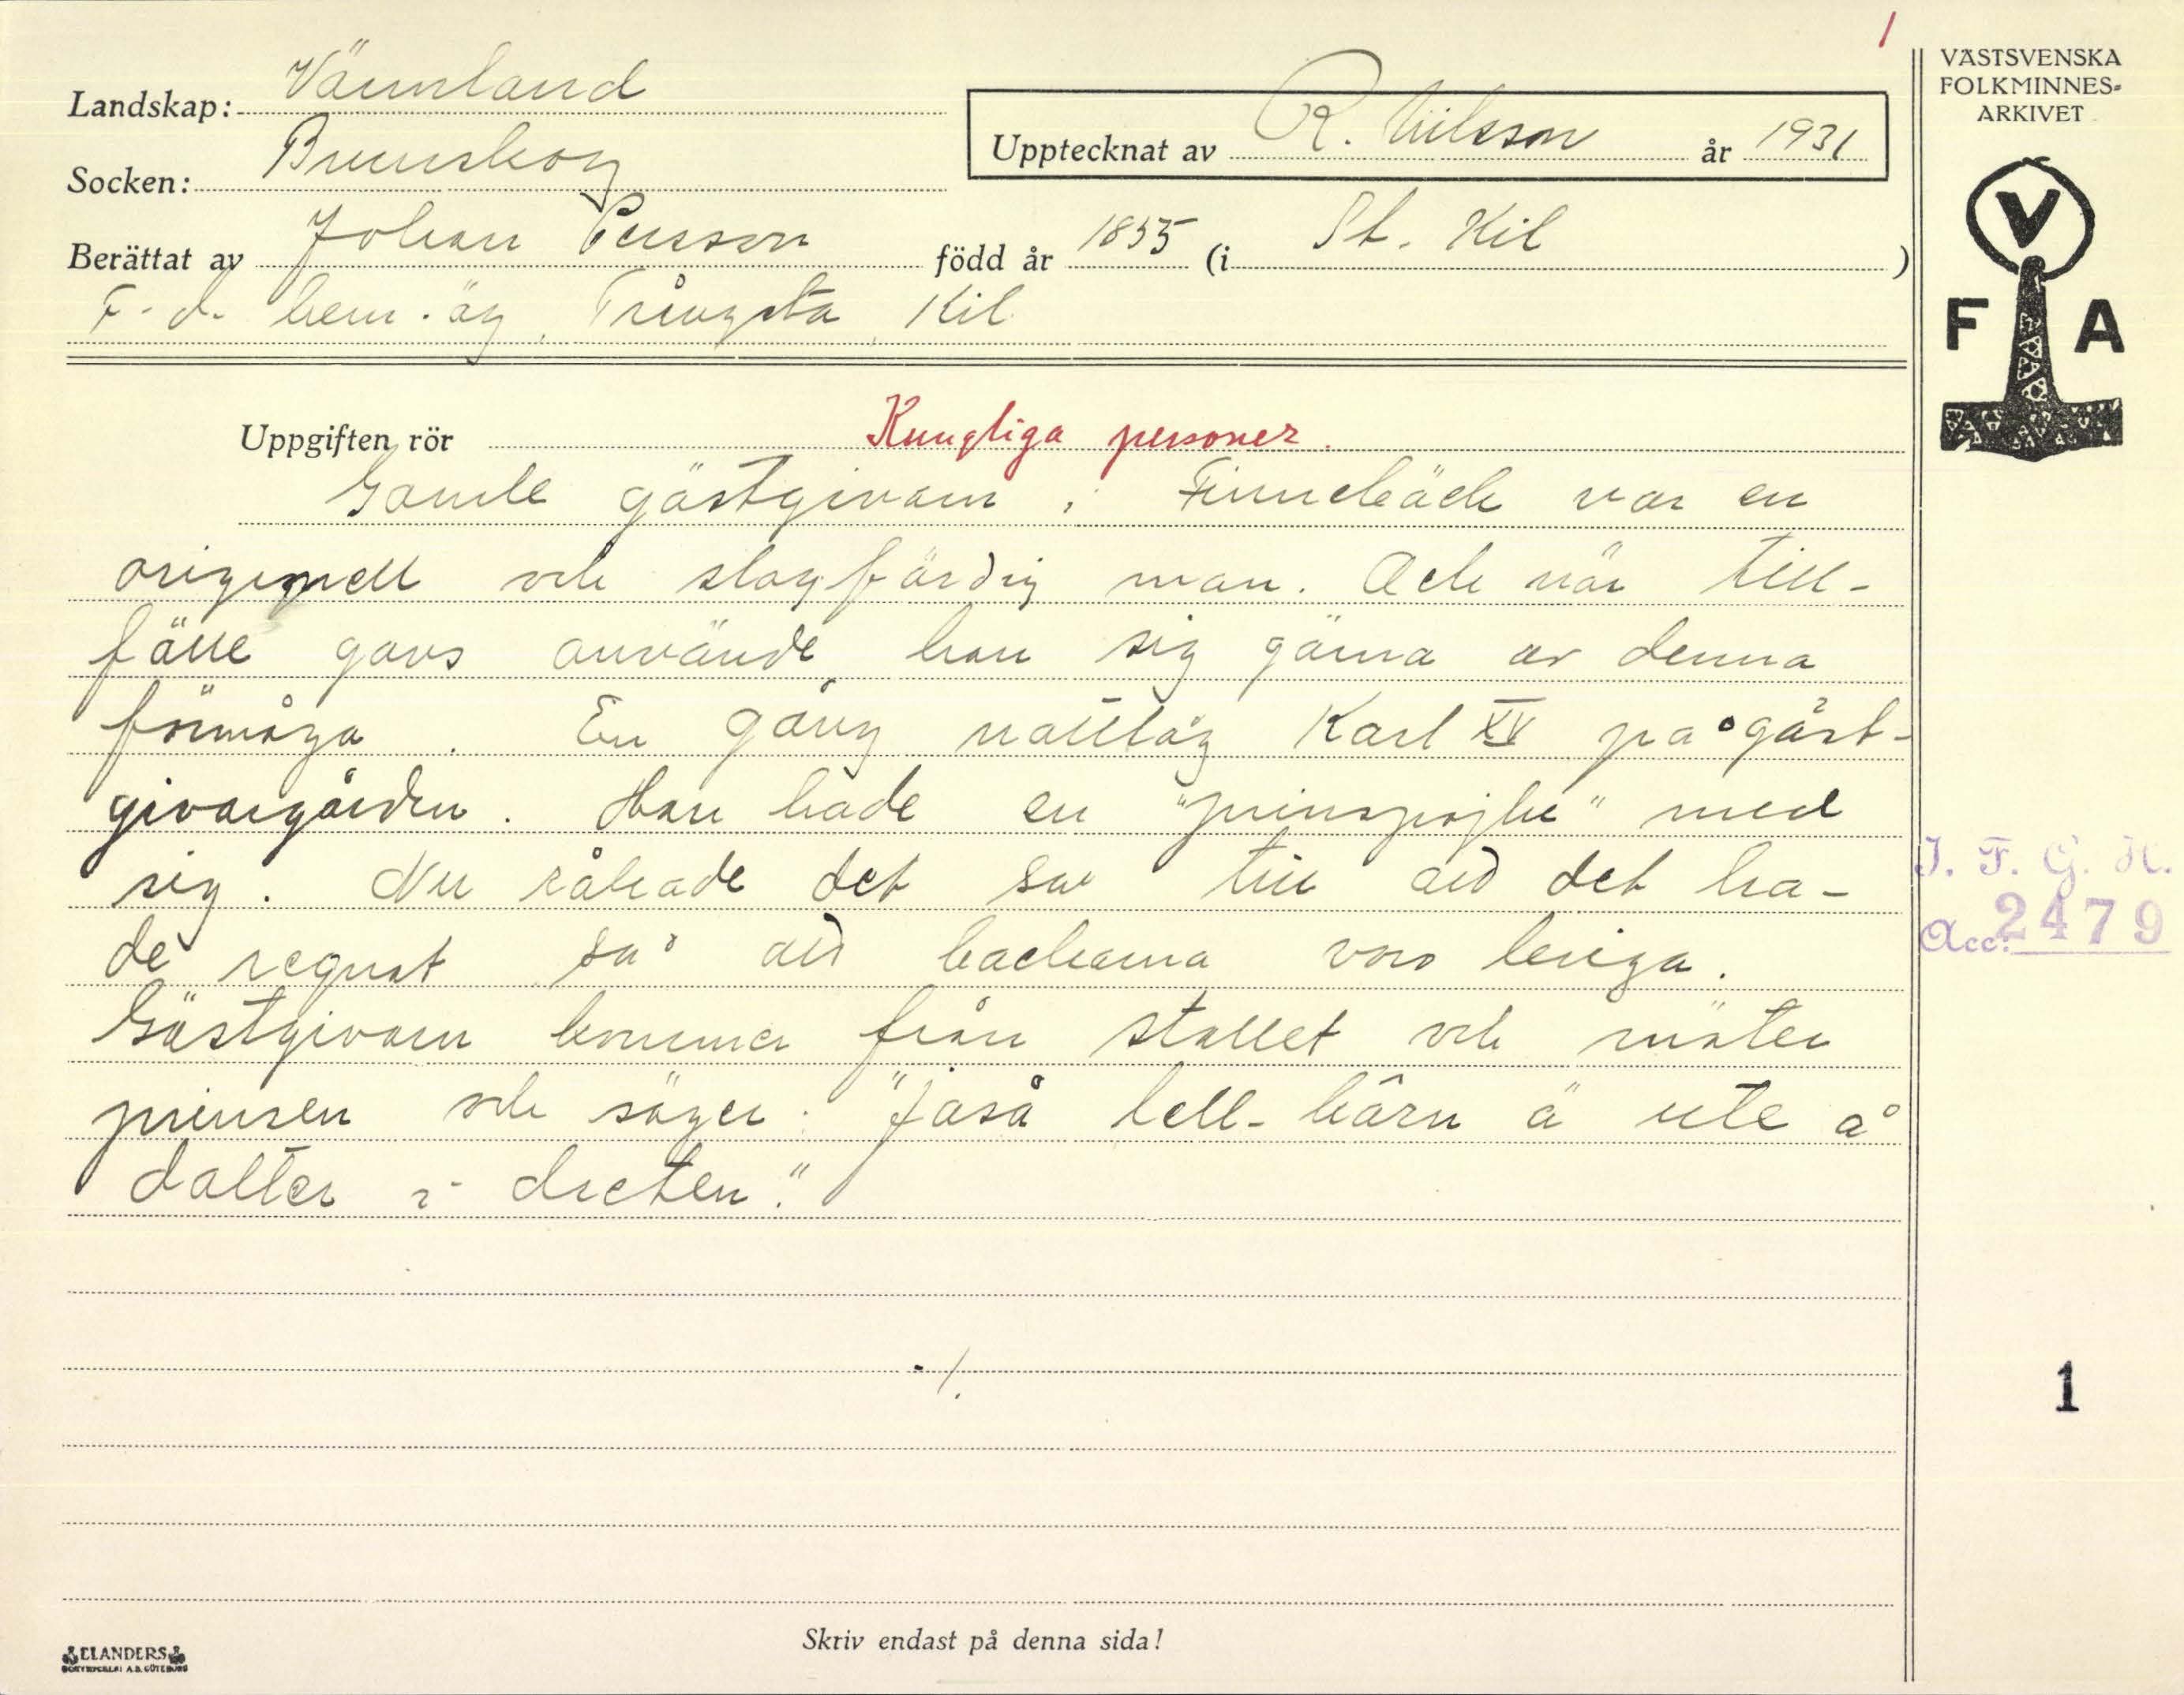 1
VÄSTSVENSKA
FOLKMINNES-
ARKIVET
V
F A
Landskap: Värmland
Upptecknat av R. Nilsson år 1931
Socken: Brunskog
Berättat av Johan Persson född år 1855 (i St. Kil )
F. d. hem. äg. Trångsta, Kil
Uppgiften rör Kungliga personer.
Gamle gästgivarn i Finnebäck var en
originell och slagfärdig man. Och när till-
fälle gavs använde han sig gärna av denna
förmåga. En gång nattlåg Karl XV på gäst-
givargården. Han hade en "prinspojke" med
sig. Nu råkade det sa till att det ha-
de regnat så att backarna voro leriga.
Gästgivarn kommer från stallet och möter
prinsen och säger: "Jaså hell-bârn ä ute å
dalter i dreten."
./.
J. F. G. H.
Acc: 2479
1
Skriv endast på denna sida!
ELANDERS
BOKTRYCKERI A.B. GÖTEBORG